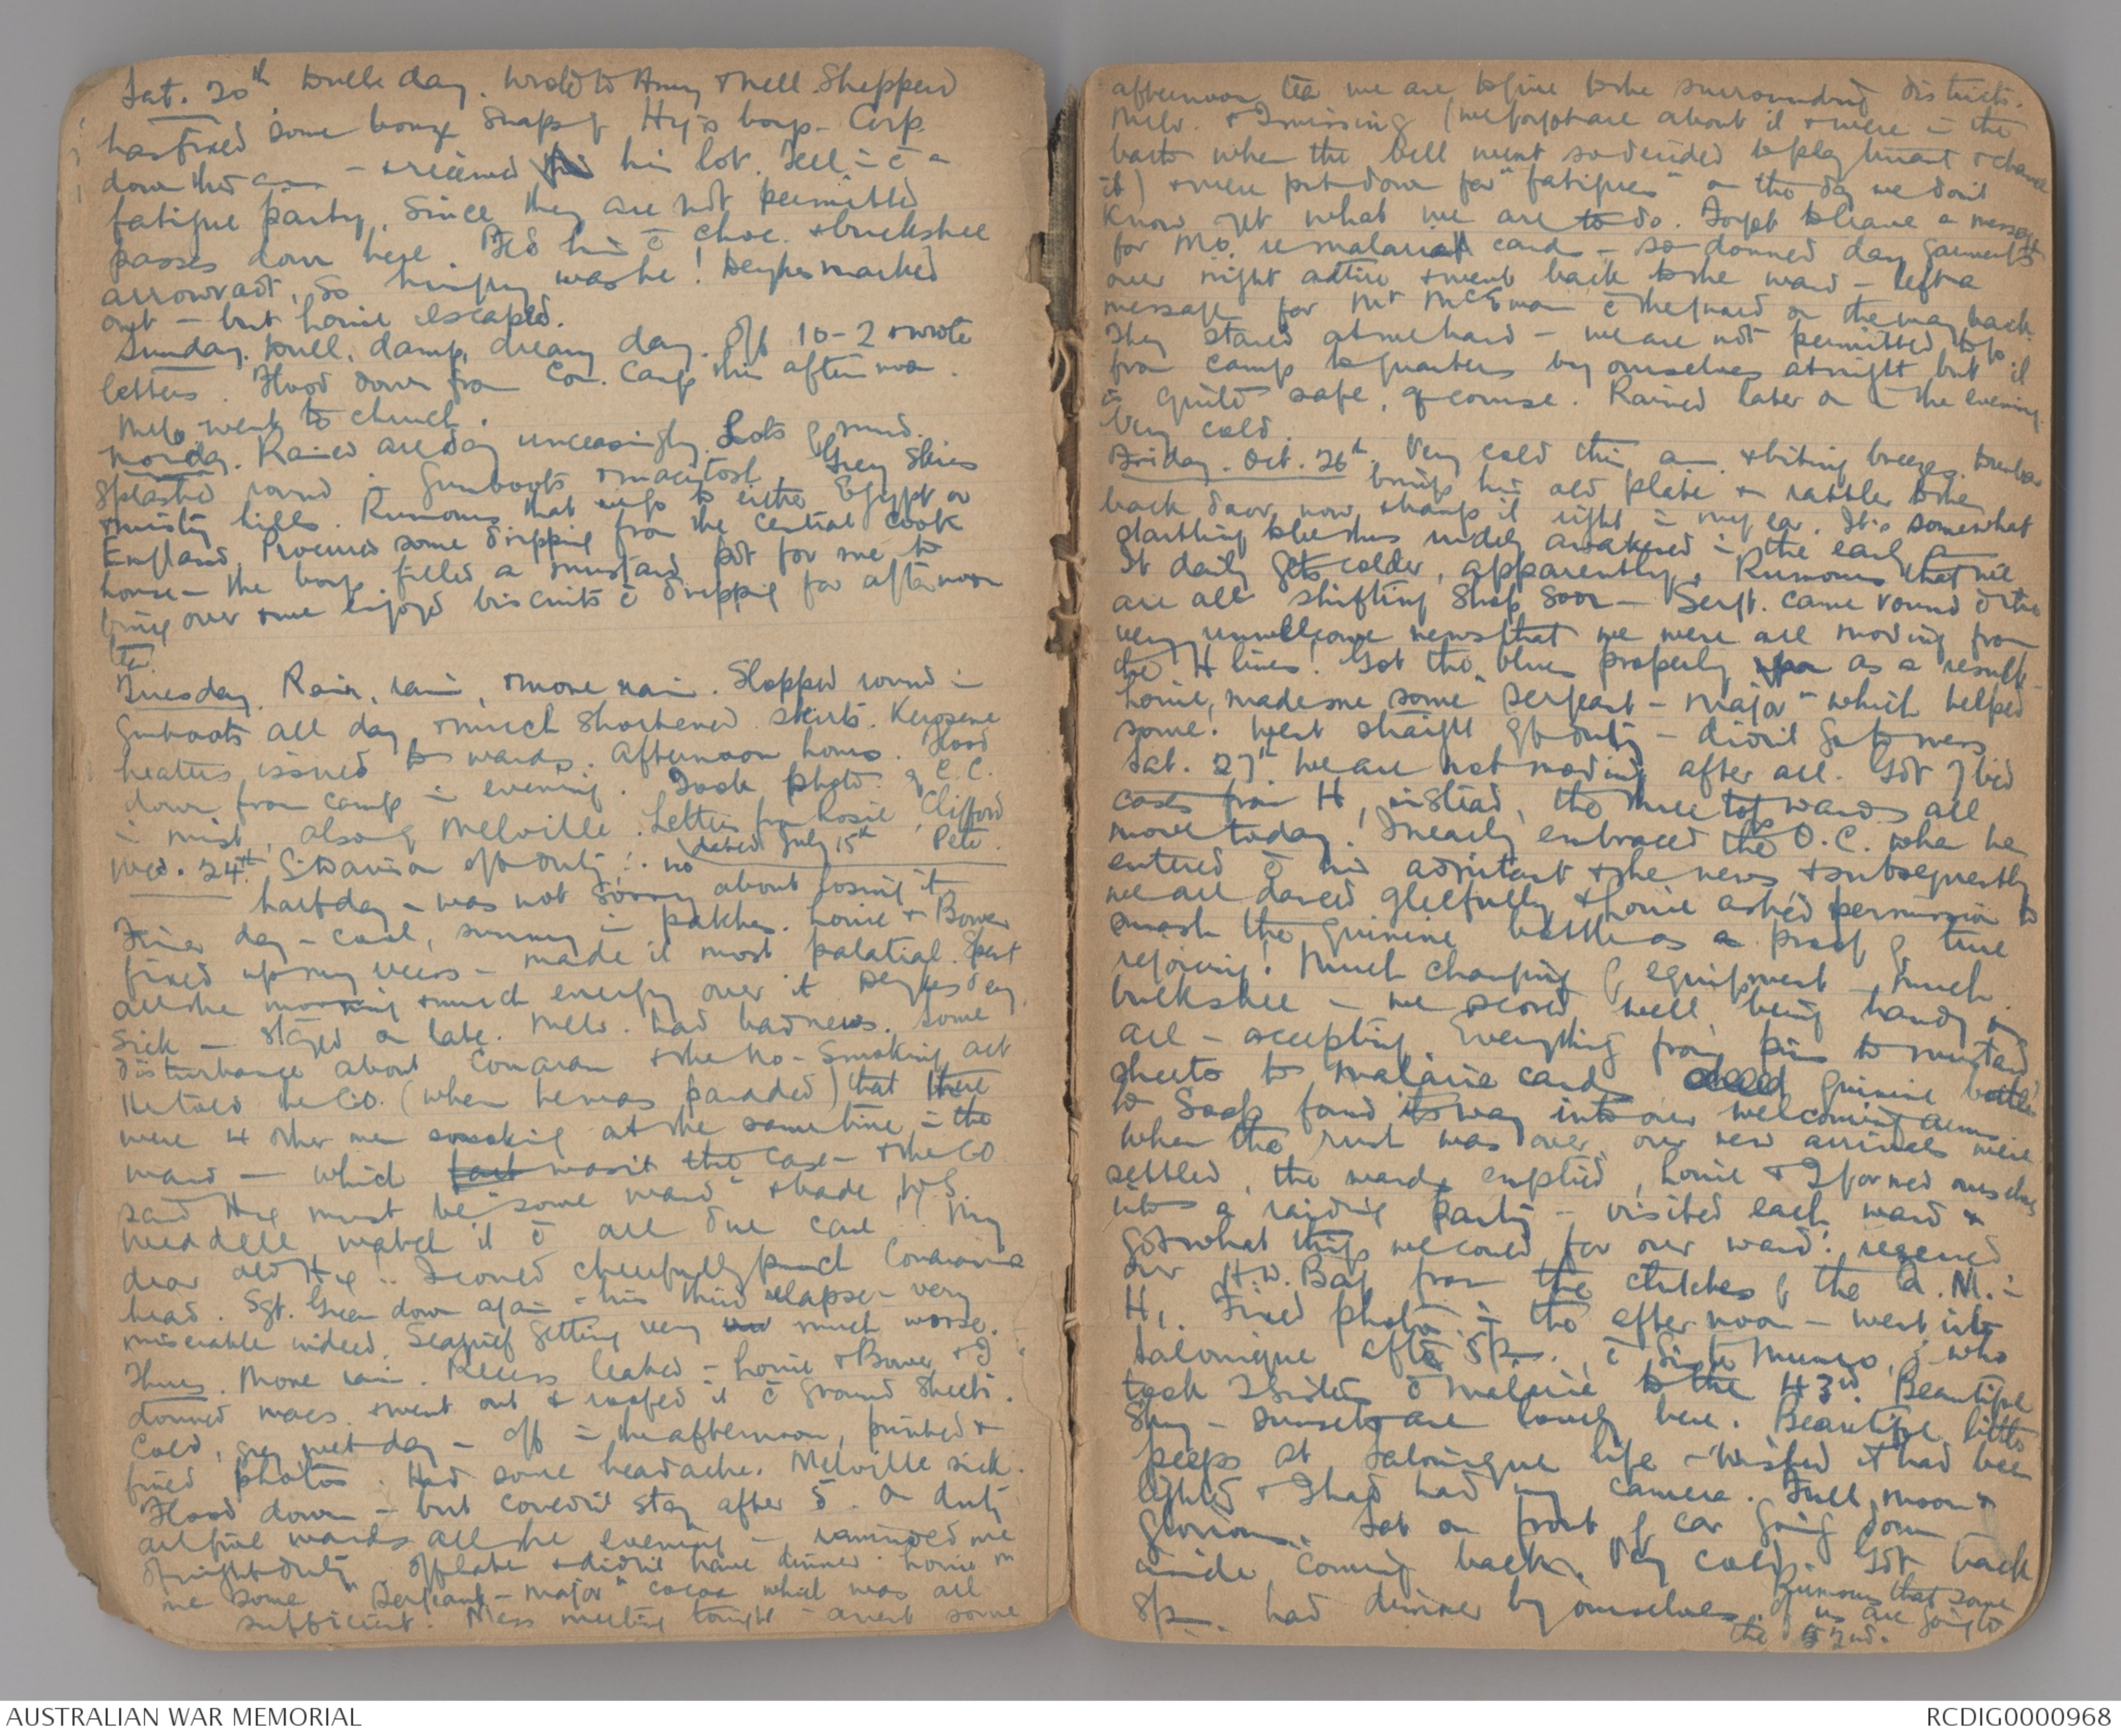 Sat. 20th Dull day. Wrote to Amy & Nell. Shepperd
has fixed some bonza snaps of Hy's boys - Corp
down this am - & received his lot. Tell - c a
fatigue party, since they are not permitted
passes down here. Fed him c choc. & buckshee
arrowroot, so hungry was he! Deyhes marked
out - but Lonie escaped.
Sunday. Dull, damp, dreary day. Off 10-2 & wrote
letters. Flood down from Con. Camp this afternoon.
Melv. went to church.
Monday. Rained all day unceasingly. Lots of mud.
Splashed round in gumboots & macintosh. Grey skies
& misty hills. Rumours that we go to either Egypt or
England. Procured some dripping from the Central Cook
house - the boys filled a mustard pot for me to
bring over & we enjoyed biscuits c dripping for afternoon
tea.
Tuesday. Rain, rain, & more rain. Slopped round in
gumboots all day & much shortened skirts. Kerosene
heaters issued to wards. Afternoon hours. Flood
down from camp in evening. Took photo of C.C.
in mist, also of Melville. Letters from Rosie, Clifford
Pete.
dated July 15th
Wed. 24th. S. Davison off duty ∴ no
half day - was not sorry about losing it
Finer day - cool, sunny in patches. Lonie & Bower
fixed up my recess - made it most palatial. Spent
all the morning & much energy over it. Deyhes day
sick - stayed on late. Melv. had bad news. Some
disturbance about Conaran & the no-smoking act
He told the C.O. (when he was paraded) that there
were 4 other men smoking at the same time in the
ward - which wasn't the case - & the CO
said Hy must be "some ward" & bade W.S.
Weddell watch it c all due care! My
dear old Hy!! I could cheerfully punch Conaran's
head. Sgt. Green down again - his third relapse - very
miserable indeed. Seagrief getting very much worse.
Thurs. More rain. Recess leaked - Lonie & Bower & I
donned macs & went out & roofed it c ground sheets.
Cold, grey wet day - off in the afternoon, printed &
fixed photos. Had some headache. Melville sick.
Flood down - but couldn't stay after 5. On duty
all five wards all the evening - reminded me
of night duty. Off late & didn't have dinner. Lonie m
me some "Sergeant-Major" cocoa which was all
sufficient. Mess meeting tonight - anent some
afternoon tea we are to give to the surrounding districts.
Melv. & I missing (we forgot all about it & were in the
bath when the bell went so decided to play truant & chance
it) & were put down for "fatigues" on the day we don't
know yet what we are to do. Forgot to leave a message
for Mo. re malarial cards - so donned day garments
over night attire & went back to the ward - left a
message for Mr McEwan c the guard on the way back.
They stared at me hard - we are not permitted to go
from camp to quarters by ourselves at night but it
is quite safe, of course. Rained later on in the evening.
Very cold.
Friday. Oct. 26th. Very cold this am. & biting breezes.
brings his old plate & rattler to the
back door now & bangs it right in my ear. It's somewhat
startling to be thus rudely awakened in the early am
It daily gets colder, apparently. Rumours that we
are all shifting shop soon - Sergt. came round c the
very unwelcome news that we were all moving from
the H lines! Got the blues properly as a result.
Lonie made me some "Sergeant-Major" which helped
some. Went straight off duty - didn't go to mess
Sat. 27th. We are not moving after all. Got 7 bed
cases from H, instead, the three top wards all
move today! I nearly embraced the O.C. when he
entered c his adjutant & the news & subsequently
we all danced gleefully & Lonie asked permission to
smash the quinine bottle as a proof of true
rejoicing! Much changing of equipment - much
buckshee - we scored well being handy in
all - accepting everything from pins to mustard
sheets to malaria cards quinine bottles
to soap found its way into our welcoming arms
When the rush was over, our new arrivals were
settled, the wards emptied, Lonie & I formed ourselves
into a raiding party - visited each ward &
got what things we could for our ward! rescued
our H.W. Bag from the clutches of the Q.M. in
H1. Fixed photos in the afternoon - went into
Salonique after 5 pm., c Sister Munro, who
took 2 Sisters c malaria to the 43rd. Beautiful
sky - sunsets are lovely here. Beautiful little
peeps at Salonique life - wished it had been
lighted & I had had my camera. Full moon &
glorious. Sat on front of car going down -
inside coming back. Very cold. Got back
8 pm. had dinner by ourselves. Rumours that some
of us are going to
the 52nd.
AUSTRALIAN WAR MEMORIAL
RCDIG0000968